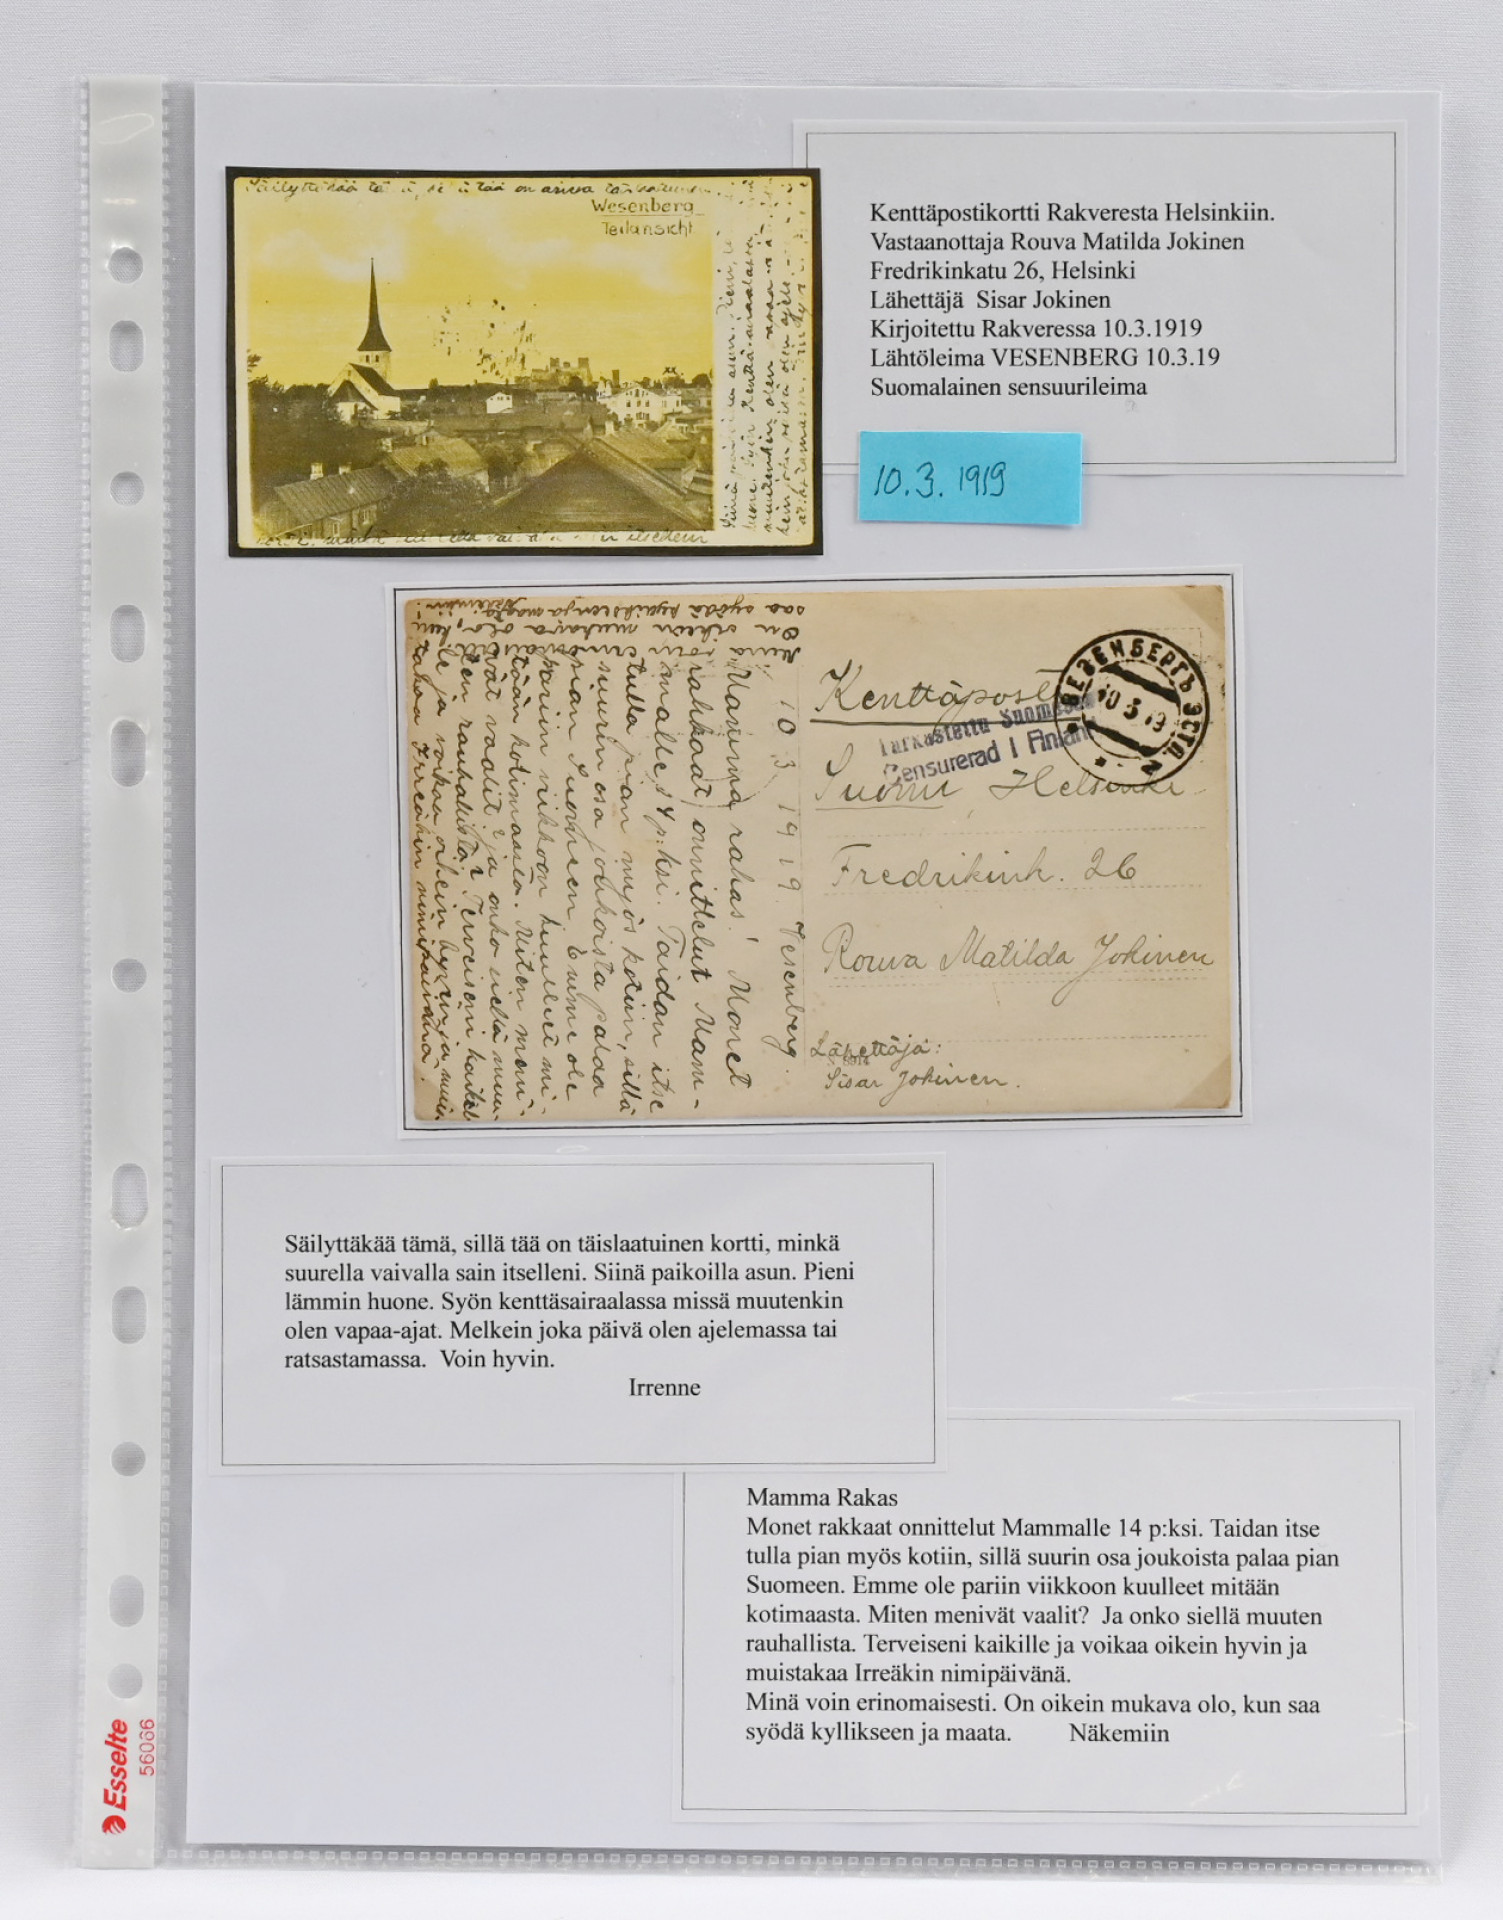 Säilyttäkää tä
tää on
Wesenberg
Teilansicht
Kenttäpostikortti Rakveresta Helsinkiin.
Vastaanottaja Rouva Matilda Jokinen
Fredrikinkatu 26, Helsinki
Lähettäjä  Sisar Jokinen
Kirjoitettu Rakveressa 10.3.1919
Lähtöleima VESENBERG 10.3.19
Suomalainen sensuurileima
10.3.1919
ВЕЗЕНБЕРГЪ ЭСТЛ.
10 3 19
Kenttäposti
Tarkastettu Suomessa
Censurerad i Finland
Suomi, Helsinki
Fredrikink. 26
Rouva Matilda Jokinen
Lähettäjä:
Sisar Jokinen.
10 3 1919. Vesenberg.
Mamma rakas! Monet
rakkaat onnittelut Mam-
malle 14 p:ksi. Taidan itse
tulla pian myös kotiin, sillä
suurin osa joukoista palaa
pian Suomeen. Emme ole
pariin viikkoon kuulleet mi-
tään kotimaasta. Miten meni-
vät vaalit? ja onko siellä muu-
ten rauhallista? Terveiseni kaikil-
le ja voikaa oikein hyvin ja muis-
takaa Irreäkin nimipäivänä.
Minä voin erinomaisesti.
On oikein mukava olo, kun
saa syödä kyllikseen ja maata.
Säilyttäkää tämä, sillä tää on täislaatuinen kortti, minkä
suurella vaivalla sain itselleni. Siinä paikoilla asun. Pieni
lämmin huone. Syön kenttäsairaalassa missä muutenkin
olen vapaa-ajat. Melkein joka päivä olen ajelemassa tai
ratsastamassa.  Voin hyvin.
Irrenne
Mamma Rakas
Monet rakkaat onnittelut Mammalle 14 p:ksi. Taidan itse
tulla pian myös kotiin, sillä suurin osa joukoista palaa pian
Suomeen. Emme ole pariin viikkoon kuulleet mitään
kotimaasta. Miten menivät vaalit?  Ja onko siellä muuten
rauhallista. Terveiseni kaikille ja voikaa oikein hyvin ja
muistakaa Irreäkin nimipäivänä.
Minä voin erinomaisesti. On oikein mukava olo, kun saa
syödä kyllikseen ja maata.  Näkemiin
Esselte
56066